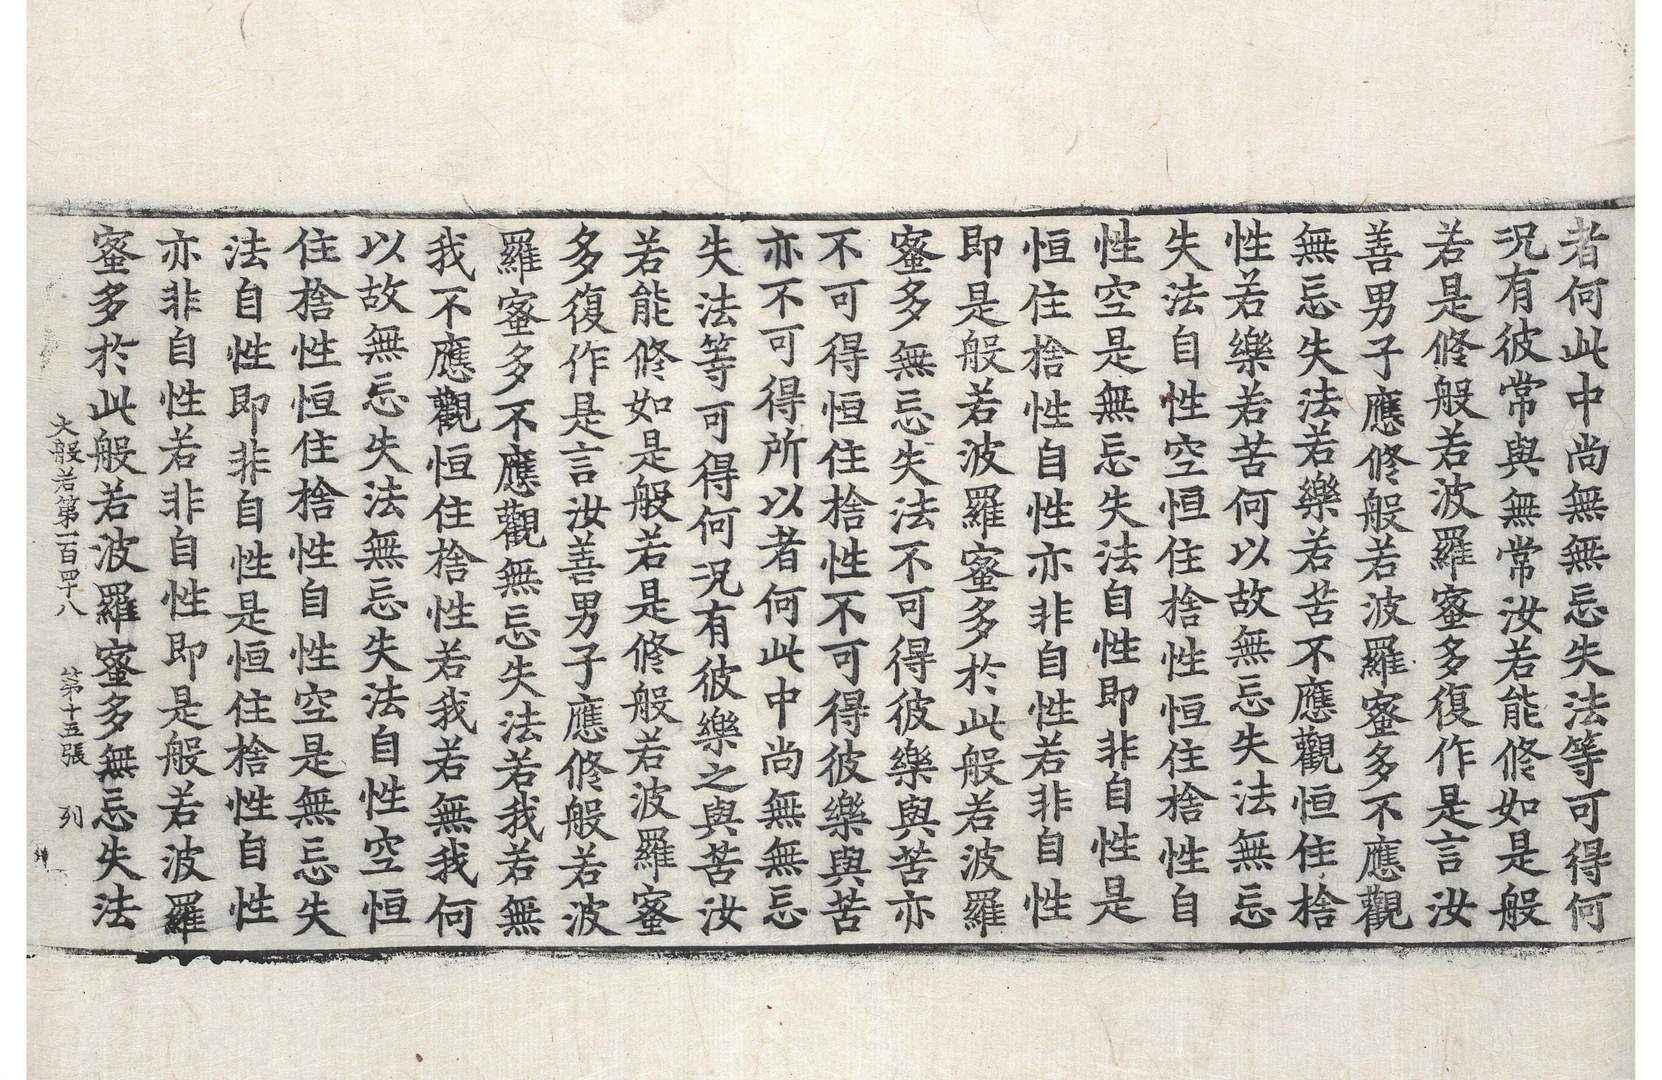 者何此中尚無無忘失法等可得何
況有彼常與無常汝若能修如是般
若是修般若波羅蜜多復作是言汝
善男子應修般若波羅蜜多不應觀
無忘失法若樂若苦不應觀恒住捨
性若樂若苦何以故無忘失法無忘
失法自性空恒住捨性恒住捨性自
性空是無忘失法自性即非自性是
恒住捨性自性亦非自性若非自性
即是般若波羅蜜多於此般若波羅
蜜多無忘失法不可得彼樂與苦亦
不可得恒住捨性不可得彼樂與苦
亦不可得所以者何此中尚無無忘
失法等可得何況有彼樂之與苦汝
若能修如是般若是修般若波羅蜜
多復作是言汝善男子應修般若波
羅蜜多不應觀無忘失法若我若無
我不應觀恒住捨性若我若無我何
以故無忘失法無忘失法自性空恒
住捨性恒住捨性自性空是無忘失
法自性即非自性是恒住捨性自性
亦非自性若非自性即是般若波羅
蜜多於此般若波羅蜜多無忘失法
大般若第一百四十八 第十五張 列